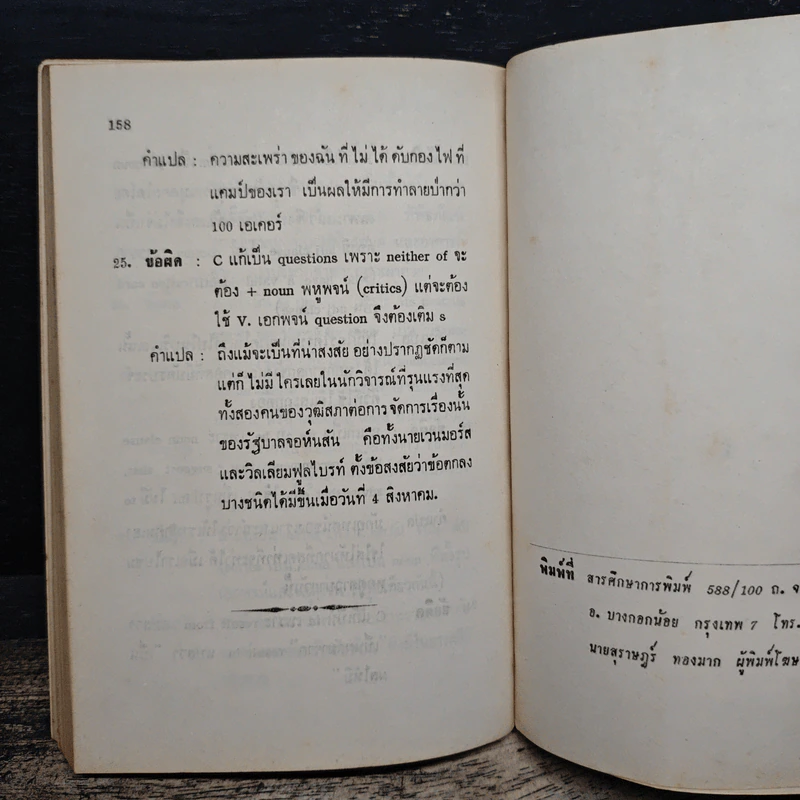 158
คำแปล : ความสะเพร่า ของฉัน ที่ ไม่ ได้ ดับกอง ไฟ ที่
แคมป์ของเรา เป็นผลให้มีการทำลายป่ากว่า
100 เอเคอร์
25. ข้อผิด : C แก้เป็น questions เพราะ neither of จะ
ต้อง + noun พหูพจน์ (critics) แต่จะต้อง
ใช้ V. เอกพจน์ question จึงต้องเติม s
คำแปล : ถึงแม้จะเป็นที่น่าสงสัย อย่างปรากฏชัดก็ตาม
แต่ก็ ไม่มี ใครเลยในนักวิจารณ์ที่รุนแรงที่สุด
ทั้งสองคนของวุฒิสภาต่อการ จัดการเรื่องนั้น
ของรัฐบาลจอห์นสัน คือทั้งนายเวนมอร์ส
และวิลเลียมฟูลไบรท์ ตั้งข้อสงสัยว่าข้อตกลง
บางชนิดได้มีขึ้นเมื่อวันที่ 4 สิงหาคม.
พิมพ์ที่ สารศึกษาการพิมพ์ 588/100 ถ. จ
อ. บางกอกน้อย กรุงเทพ 7 โทร.
นายสุราษฎร์ ทองมาก ผู้พิมพ์โฆษ